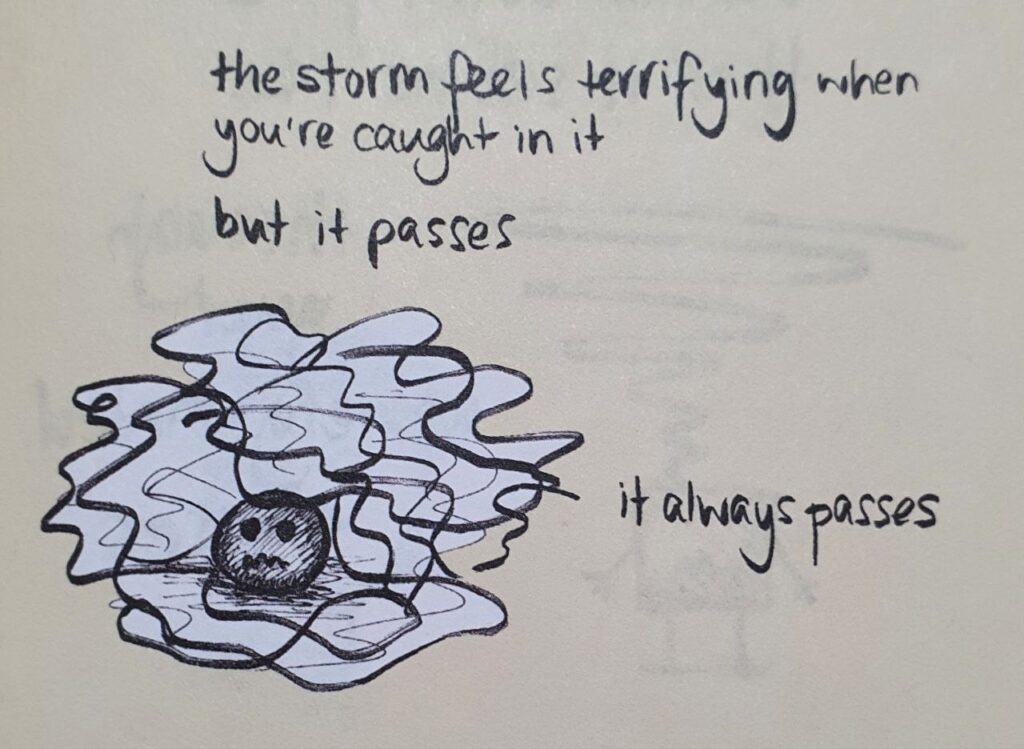 the storm feels terrifying when
you're caught in it
but it passes
it always passes